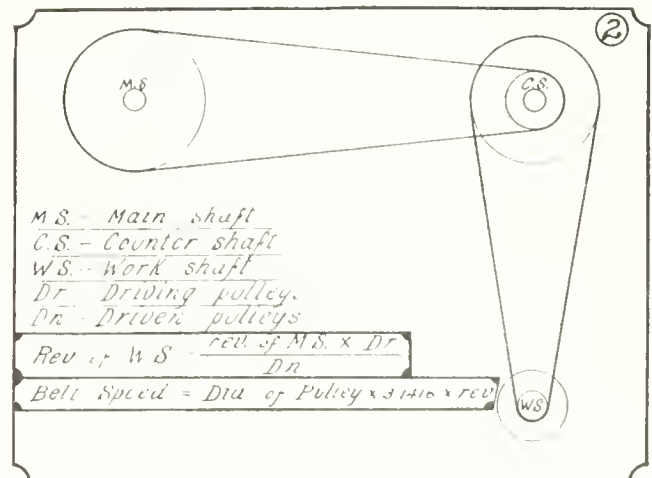 2
M.S.
C.S.
M.S. - Main shaft
C.S. - Counter shaft
W.S. - Work shaft
Dr Driving pulleys
Dn - Driven pulleys
Rev of W S = rev. of M S. × Dr
Dn
Belt Speed = Dia of Pulley × 3.1416 × rev
WS